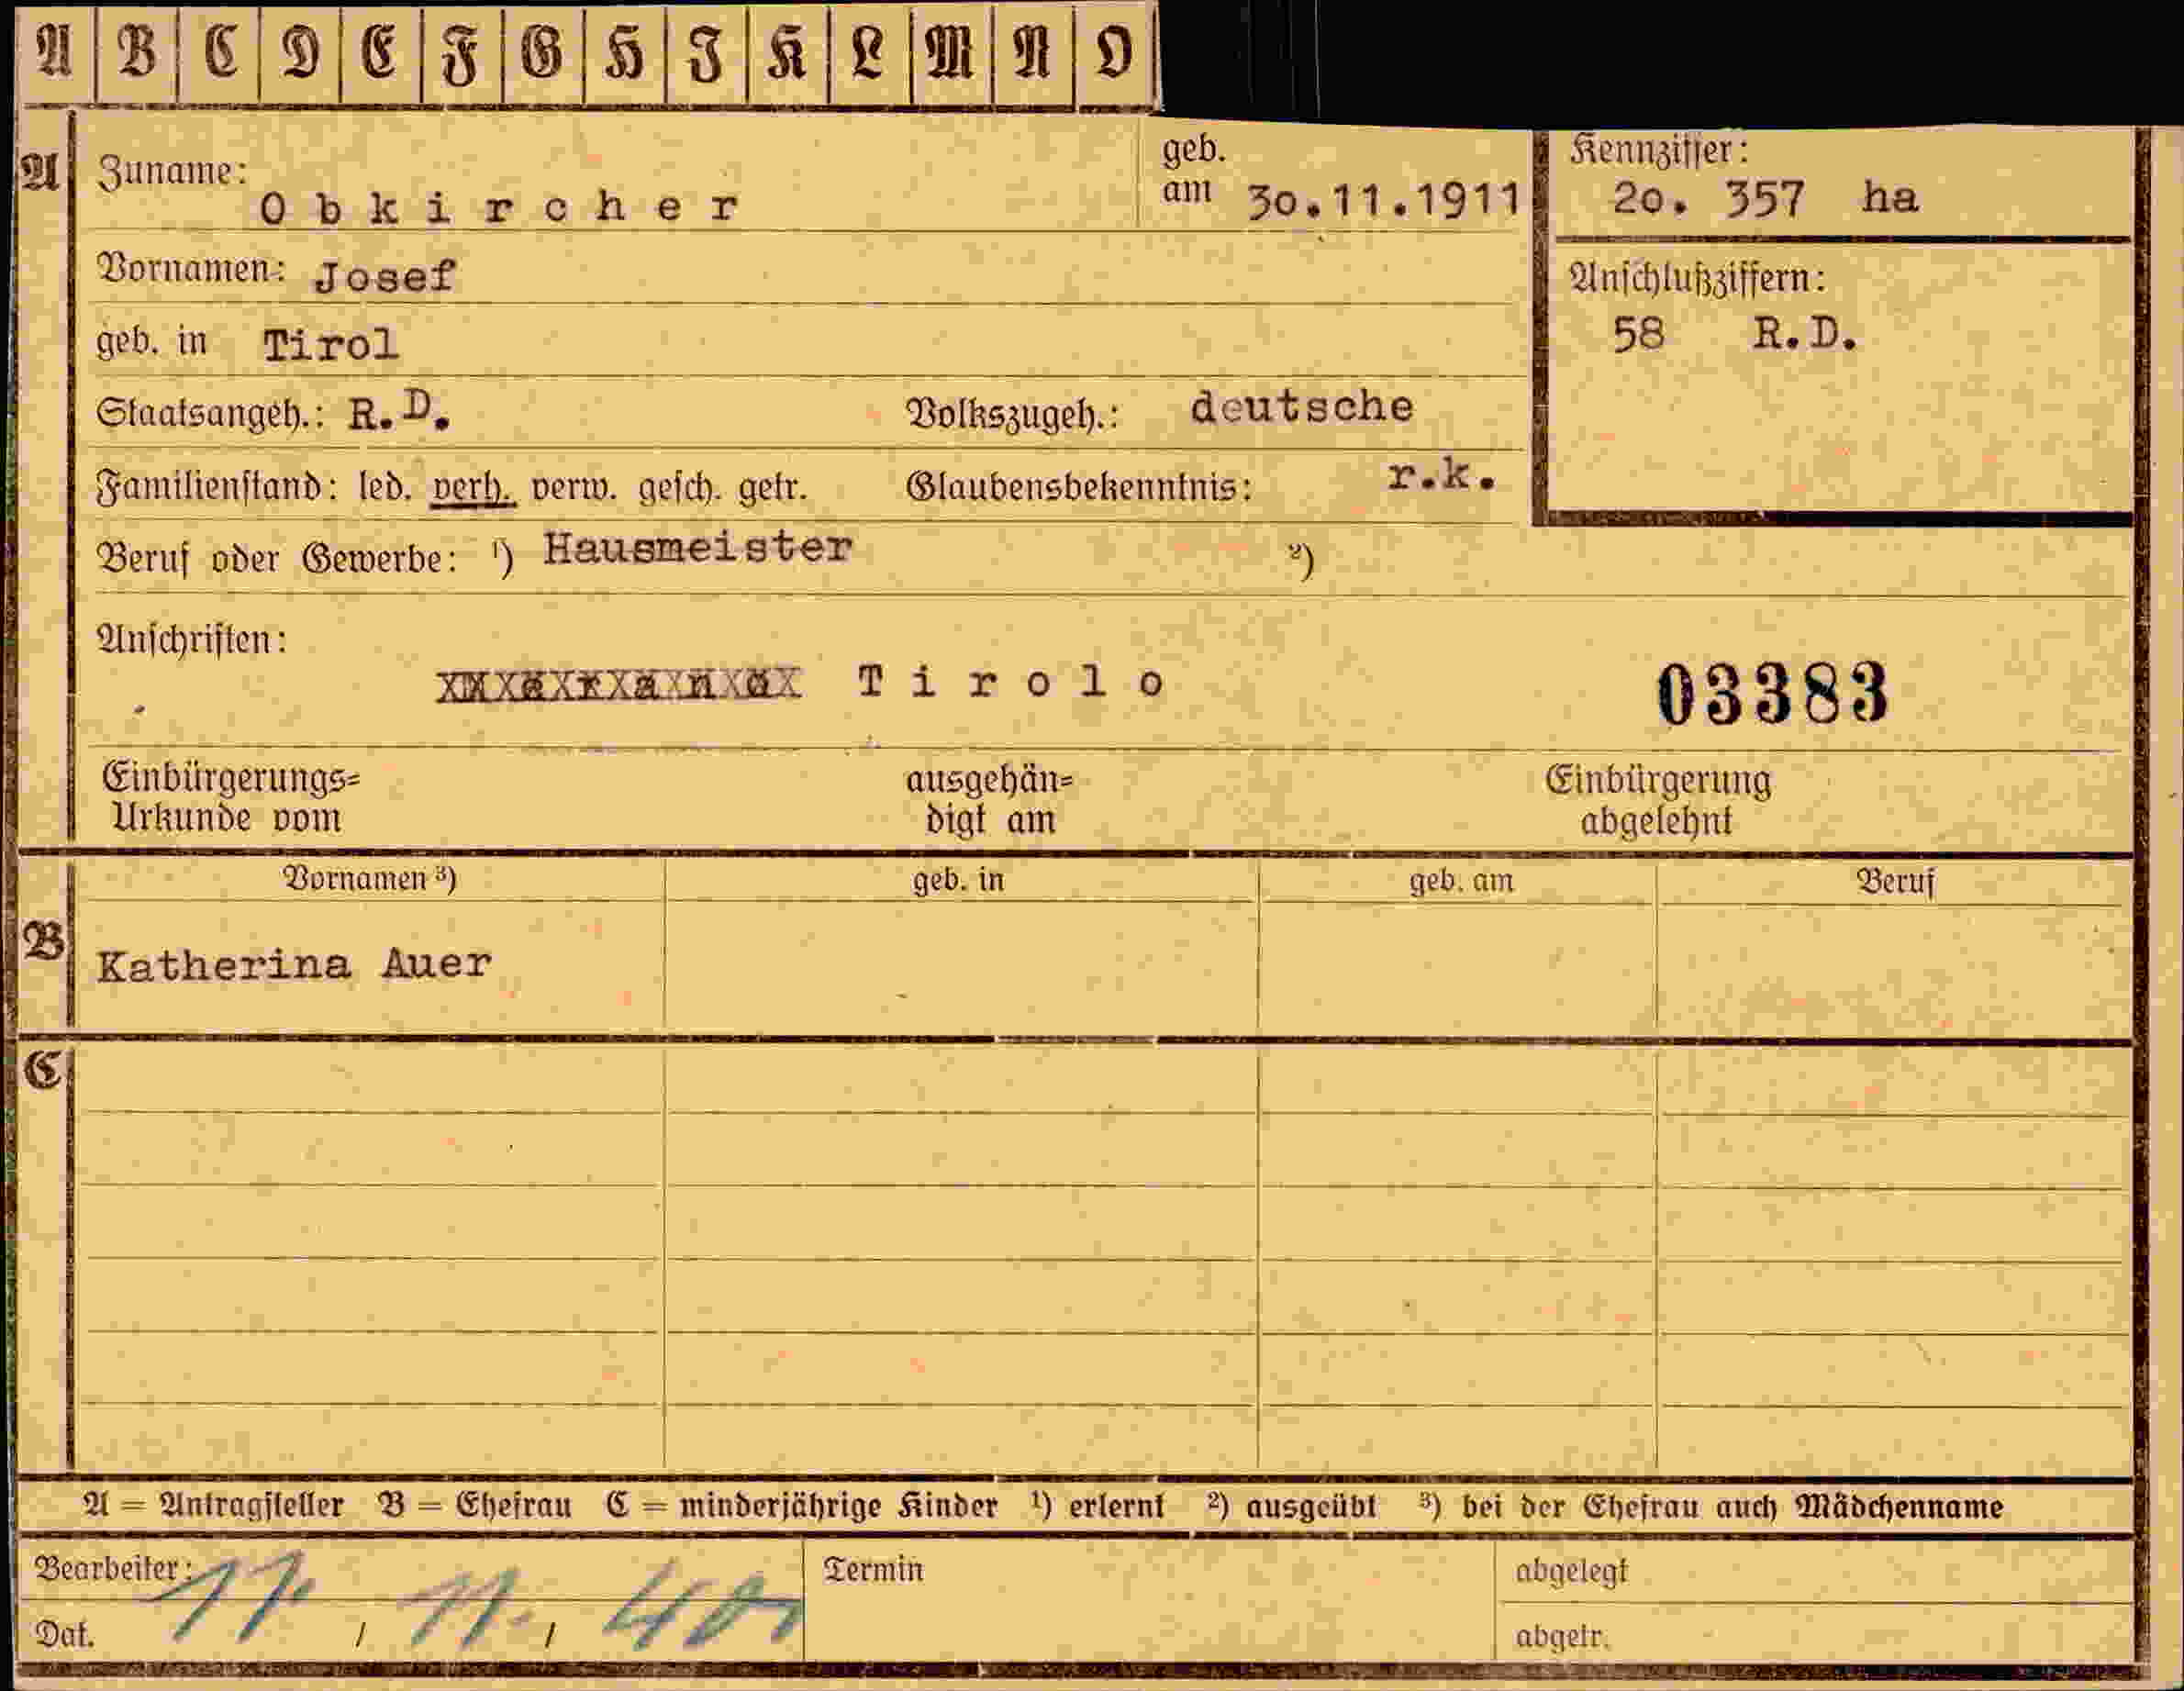 A B C D E F G H I K L M N O
A
Zuname: Obkircher
geb. am 30.11.1911
Kennziffer:
20. 357 ha
Vornamen: Josef
Anschlußziffern:
58 R.D.
geb. in Tirol
Staatsangeh.: R.D. Volkszugeh.: deutsche
Familienstand: led. verh. verw. gesch. getr. Glaubensbekenntnis: r.k.
Beruf oder Gewerbe: ¹) Hausmeister ²)
Anschriften:
Tirolo
03383
Einbürgerungs=
Urkunde vom
ausgehän=
digt am
Einbürgerung
abgelehnt
Vornamen ³) geb. in geb. am Beruf
B
Katherina Auer
C
A = Antragsteller B = Ehefrau C = minderjährige Kinder ¹) erlernt ²) ausgeübt ³) bei der Ehefrau auch Mädchenname
Bearbeiter: Termin abgelegt
Dat. 11. / 11. / 40. abgetr.